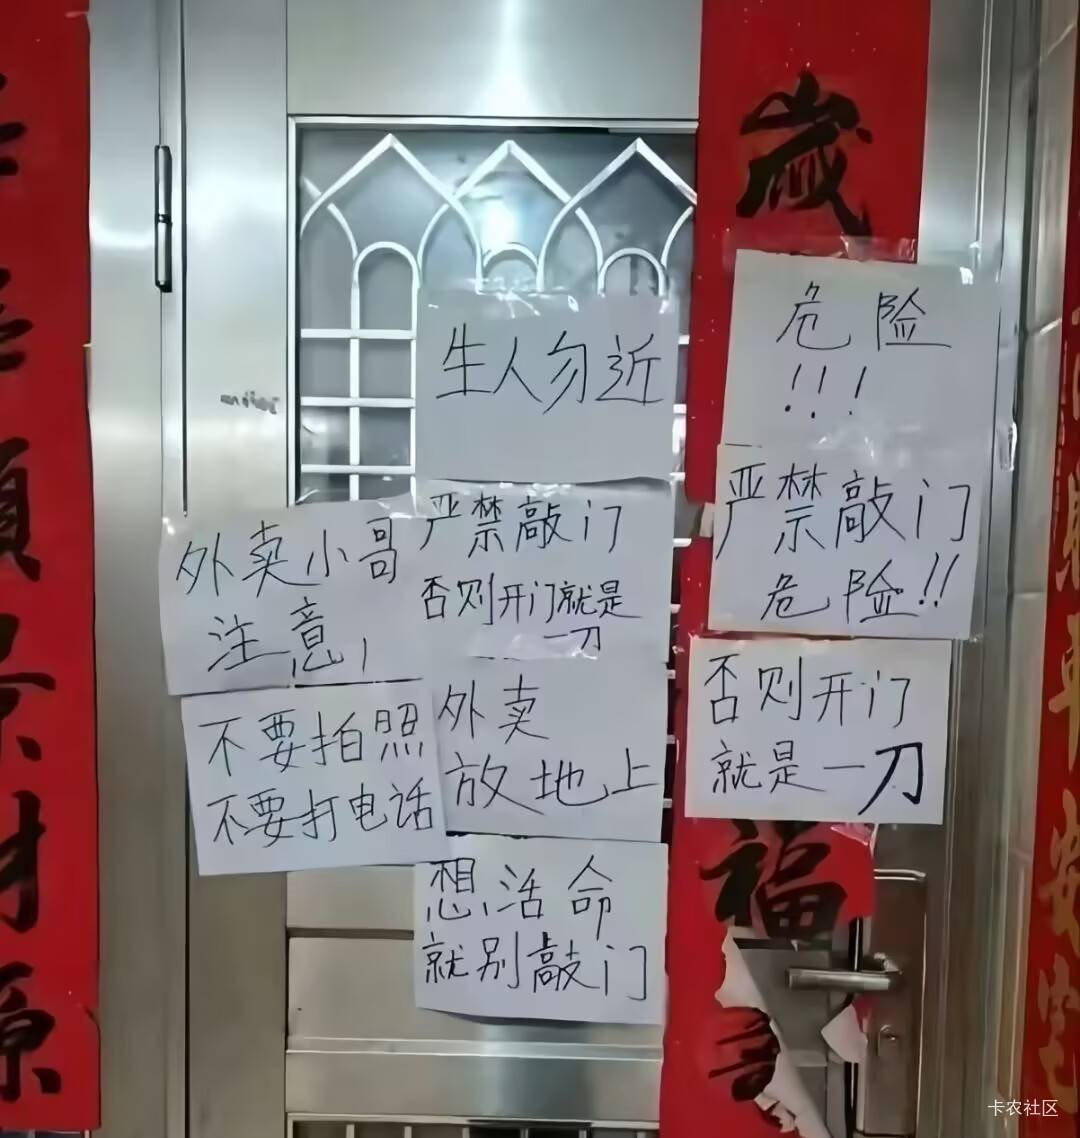 歲
福
生人勿近
危险
!!!
严禁敲门
危险!!
否则开门
就是一刀
外卖小哥
注意,
不要拍照
不要打电话
严禁敲门
否则开门就是
一刀
外卖
放地上
想活命
就别敲门
順
景
財
源
平
安
宅
卡农社区